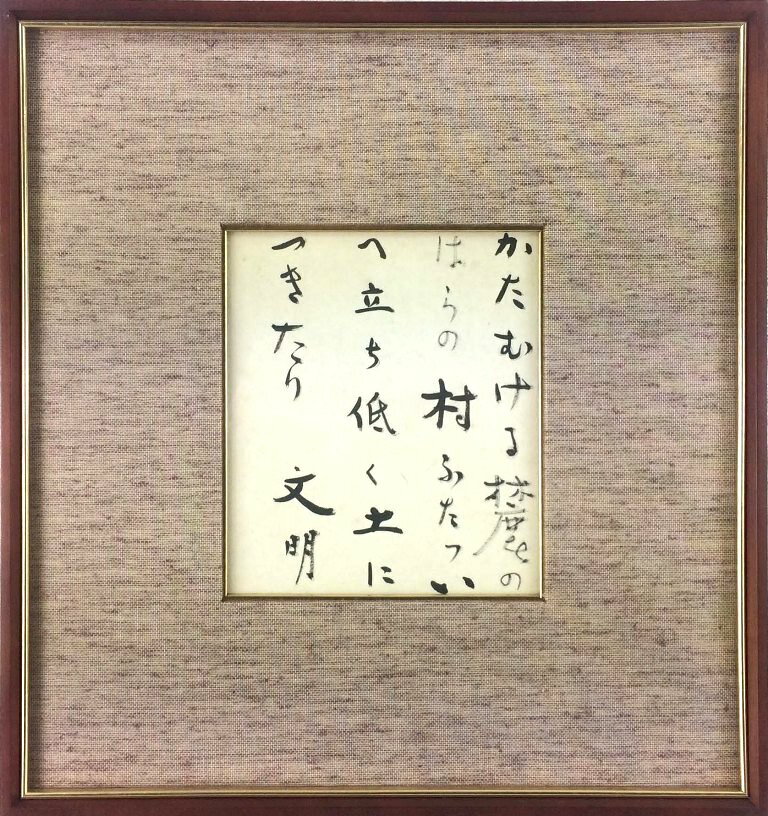 かたむける麓の
はらの村ふたつい
へ立ち低く土に
つきたり
文明